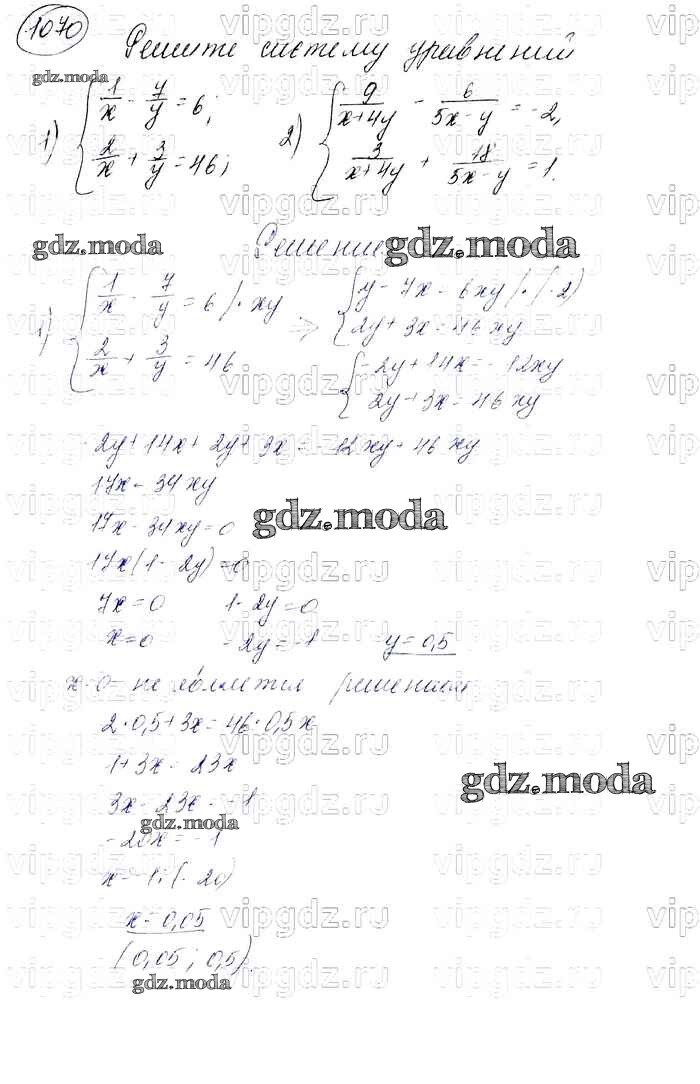 1070
Решите систему уравнений
gdz.moda
1) { 1/x - 7/y = 6;
2/x + 3/y = 46;
2) { 9/(x+4y) - 6/(5x-y) = -2,
3/(x+4y) + 18/(5x-y) = 1.
gdz.moda
Решение
gdz.moda
1) { 1/x - 7/y = 6 | · xy
2/x + 3/y = 46
=> { y - 7x = 6xy | · (-2)
2y + 3x = 46xy
{ -2y + 14x = -12xy
2y + 3x = 46xy
-2y + 14x + 2y + 3x = -12xy + 46xy
17x = 34xy
17x - 34xy = 0
gdz.moda
17x(1 - 2y) = 0
7x = 0 1 - 2y = 0
x = 0 -2y = -1 y = 0,5
x = 0 - не является решением
2·0,5 + 3x = 46·0,5x
1 + 3x = 23x
gdz.moda
3x - 23x = -1
gdz.moda
-20x = -1
x = -1 : (-20)
x = 0,05
(0,05; 0,5).
gdz.moda
vipgdz.ru